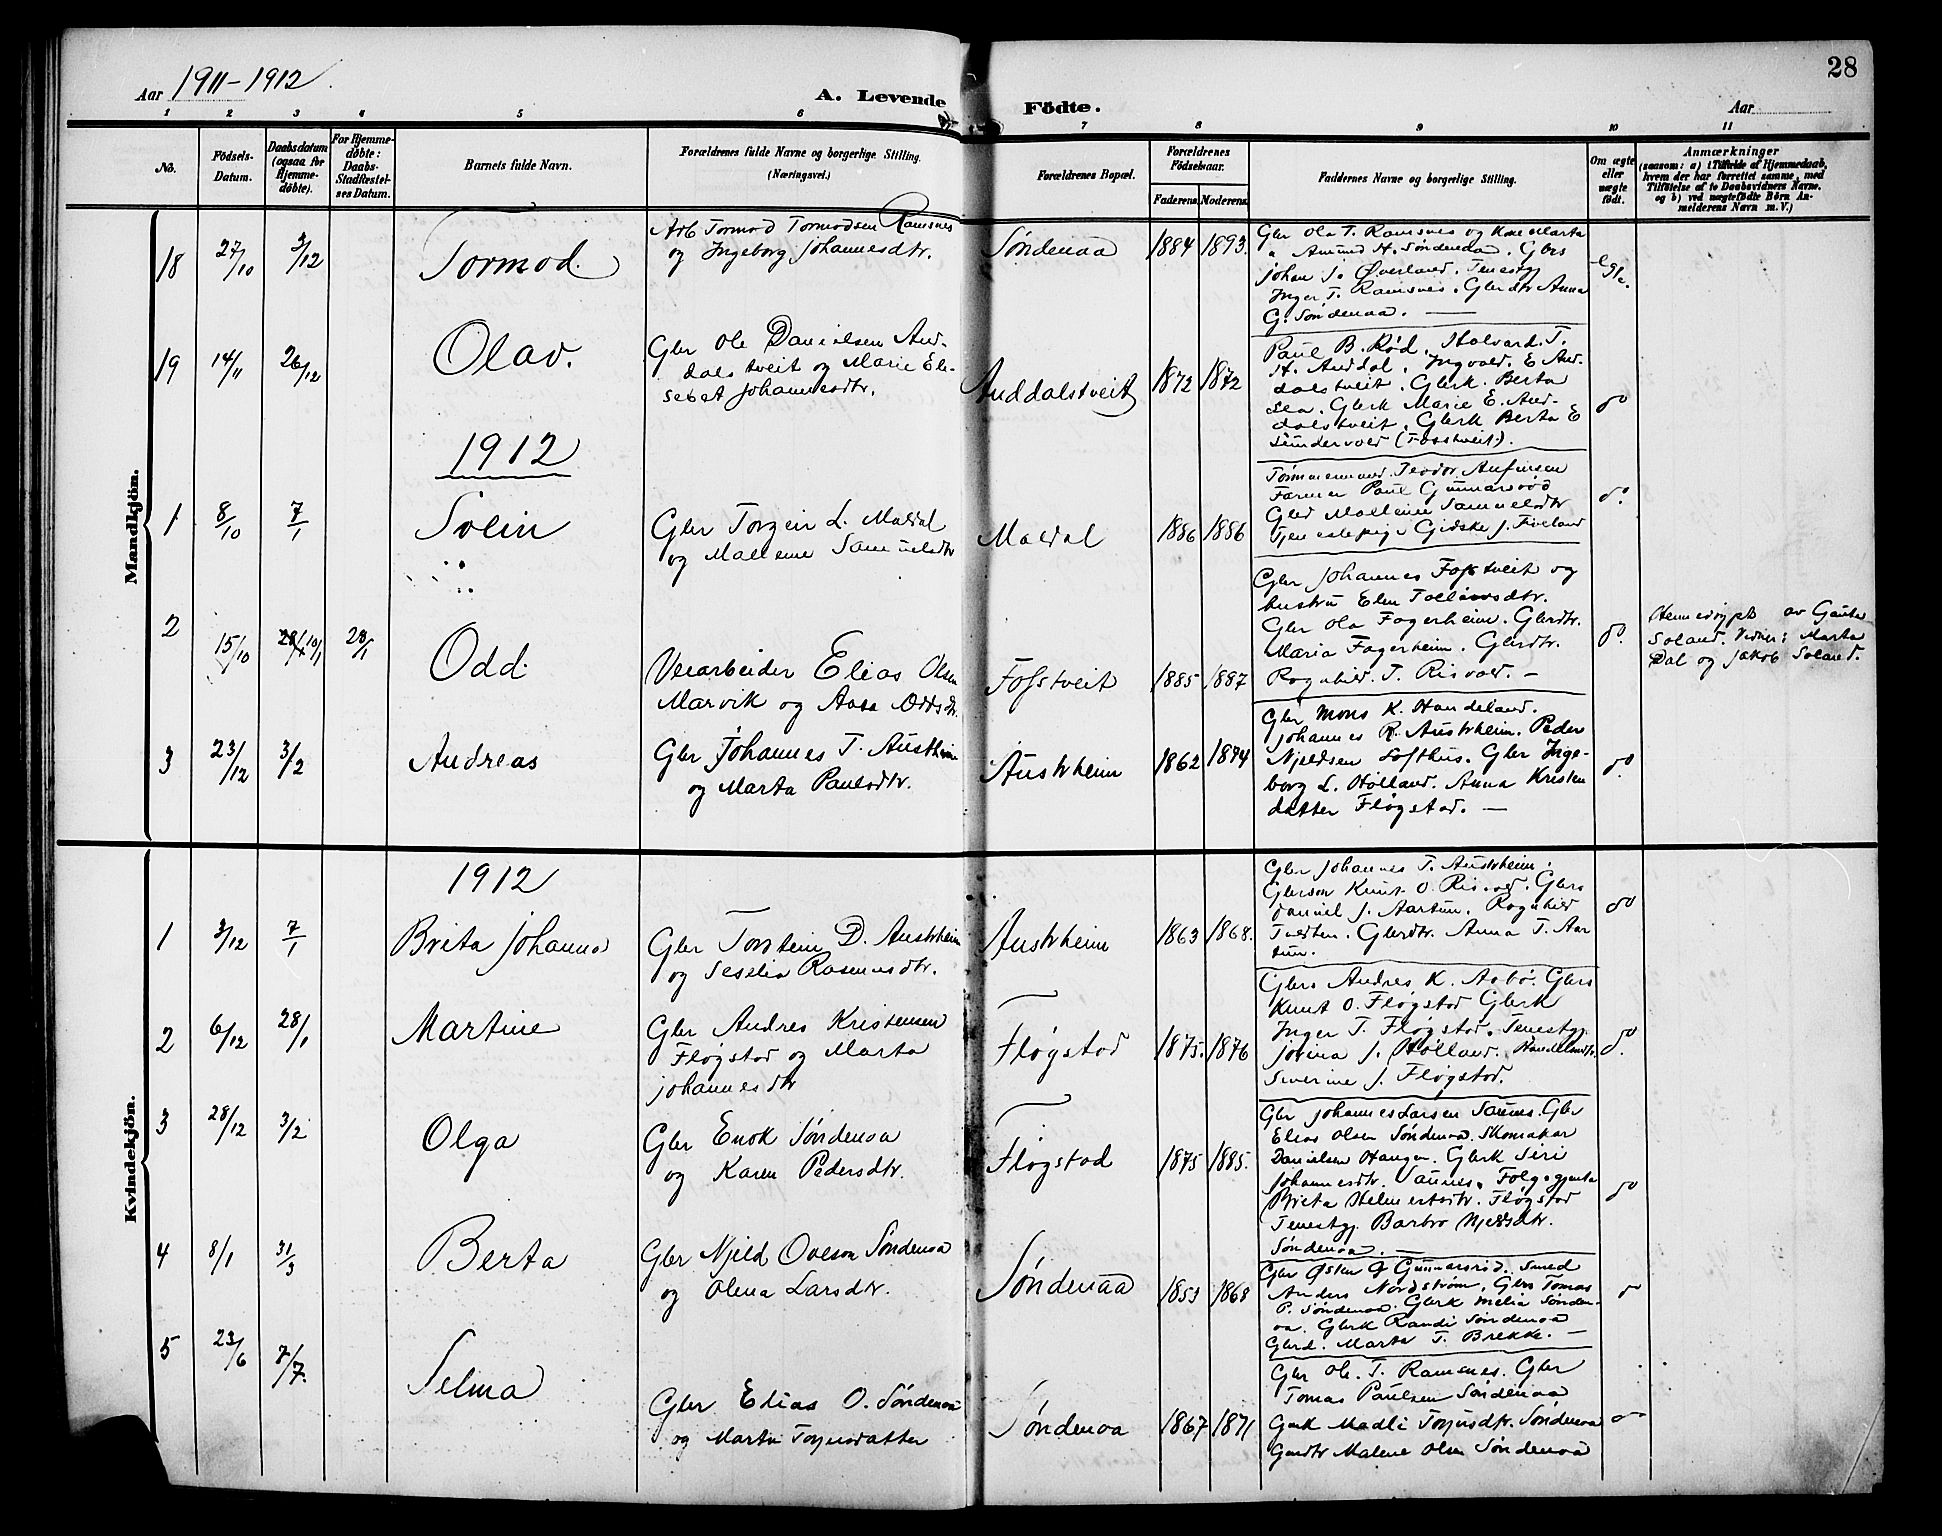 28
Aar 1911-1912
A. Levende Födte.
Aar
1 2 3 4 5 6 7 8 9 10 11
No.
Födsels-
Datum.
Daabsdatum
(ogsaa for
Hjemme-
döbte).
For Hjemme-
döbte:
Daabs-
Stadfæstel-
ses Datum.
Barnets fulde Navn.
Forældrenes fulde Navne og borgerlige Stilling.
(Næringsvei.)
Forældrenes Bopæl.
Forældrenes
Födselsaar.
Faderens. Moderens.
Faddernes Navne og borgerlige Stilling.
Om ægte
eller
uægte
födt.
Anmærkninger
(saasom: a) i Tilfælde af Hjemmedaab,
hvem der har forrettet samme, med
Tilföielse af to Daabsvidners Navne.
og b) ved uægtefödte Börn An-
melderens Navn m. V.)
Mandkjön.
18 27/10 3/12 Tormod.
Arb Tormod Tormodsen Ramsnes
og Ingeborg Johannesdtr.
Søndenaa 1884 1893.
Gbr Ola T. Ramsnes og Kone Marta
Amund H. Søndenaa. Gbrs
Johan J. Øverland. Tenestgj
Inger T. Ramsnes. Gbrdtr Anna
G. Søndenaa.
19 14/11 26/12 Olav.
Gbr Ole Danielsen Aud-
dalstveit og Marie Eli-
sebet Johannesdtr.
Auddalstveit 1872 1872
Paul B. Rød. Halvard. T.
H. Auddal. Ingvald. E. Aud-
dalstveit. Gbrk. Berta
Lea. Gbrk Marie E. Aud-
dalstveit. Gbrk Berta E
Sundervold (Fosstveit).
do
1912
1 8/10 7/1 Svein
Gbr Torgein L. Maldal
og Mallene Samuelsdtr
Maldal 1886 1886
Tømmermand. Teodor. Anfinsen
Farmer Paul Gunnarsrød
Gbrd Mallene Samuelsdtr
Tjenestepige Gidske J. Fiveland
do.
2 15/10 10/1 28/1 Odd.
Veiarbeider Elias Olsen
Marvik og Aasa Oddsdtr.
Fosstveit 1885 1887
Gbr Johannes Fosstveit og
hustru Elen Tollivsdtr.
Gbr Ola Fagerheim. Gbrdtr.
Maria Fagerheim. Gbrdtr.
Ragnhild. T. Risvold.
do.
Heimedøypt av Gauta
Soland. Vidner: Marta
Dal og Jakob Soland.
3 23/12 3/2 Andreas
Gbr Johannes T. Austrheim
og Marta Paulsdtr.
Austrheim 1862 1874
Gbr Mons K. Handeland.
Johannes R. Austrheim. Peder
Njeldsen Lofthus. Gbr Inge-
borg L. Hølland. Anna Kristen
datter Fløgstad.
do.
Kvindekjön.
1912
1 3/12 7/1 Brita Johanna
Gbr Torstein D. Austrheim
og Seselia Rasmusdtr.
Austrheim 1863 1868.
Gbr Johannes T. Austrheim.
Gbrson Knut O. Risvold. Gbrs
Daniel J. Aartun. Ragnhild
Tveiten. Gbrdtr. Anna T. Aar
tun.
do
2 6/12 28/1 Martine
Gbr Andres Kristensen
Fløgstad og Marta
Johannesdtr
Fløgstad 1875. 1876
Gbrs Andres K. Aabø. Gbrs
Knut O. Fløgstad Gbrk
Inger T. Fløgstad. Tenestgj.
Jorina J. Hølland. Handelsmdtr.
Severine J. Fløgstad.
do.
3 28/12 3/2 Olga
Gbr Enok Søndenaa
og Karen Pedersdtr.
Fløgstad 1875 1885.
Gbr Johannes Larsen Saunes. Gbr
Elias Olsen Søndenaa. Skomakar
Danielsen Haugen. Gbrk Siri
Johannesdtr. Saunes. Følgegjenta
Brita Helmertsdtr. Fløgstad
Tenestgj. Barbro Njeldsdtr.
Søndenaa.
do
4 8/1 31/3 Berta
Gbr Njeld Oveson Søndenaa
og Olena Larsdtr.
Søndenaa 1853 1868
Gbr Østen G Gunnarsrød. Smed
Anders Nordstrøm. Gbrs Tomas
P. Søndenaa. Gbrk Melia Sønden-
aa. Gbrk Randi Søndenaa
Gbrd. Marta T. Brekke.
5 23/6 7/7. Selma
Gbr Elias O. Søndenaa
og Marta Torjusdatter
Søndenaa 1867 1871
Gbr Ole. T. Ramsnes. Gbr
Tomas Paulsen Søndenaa
Gmk Madli Torjusdtr. Søndenaa
Gmdtr Malene Olsn Søndenaa